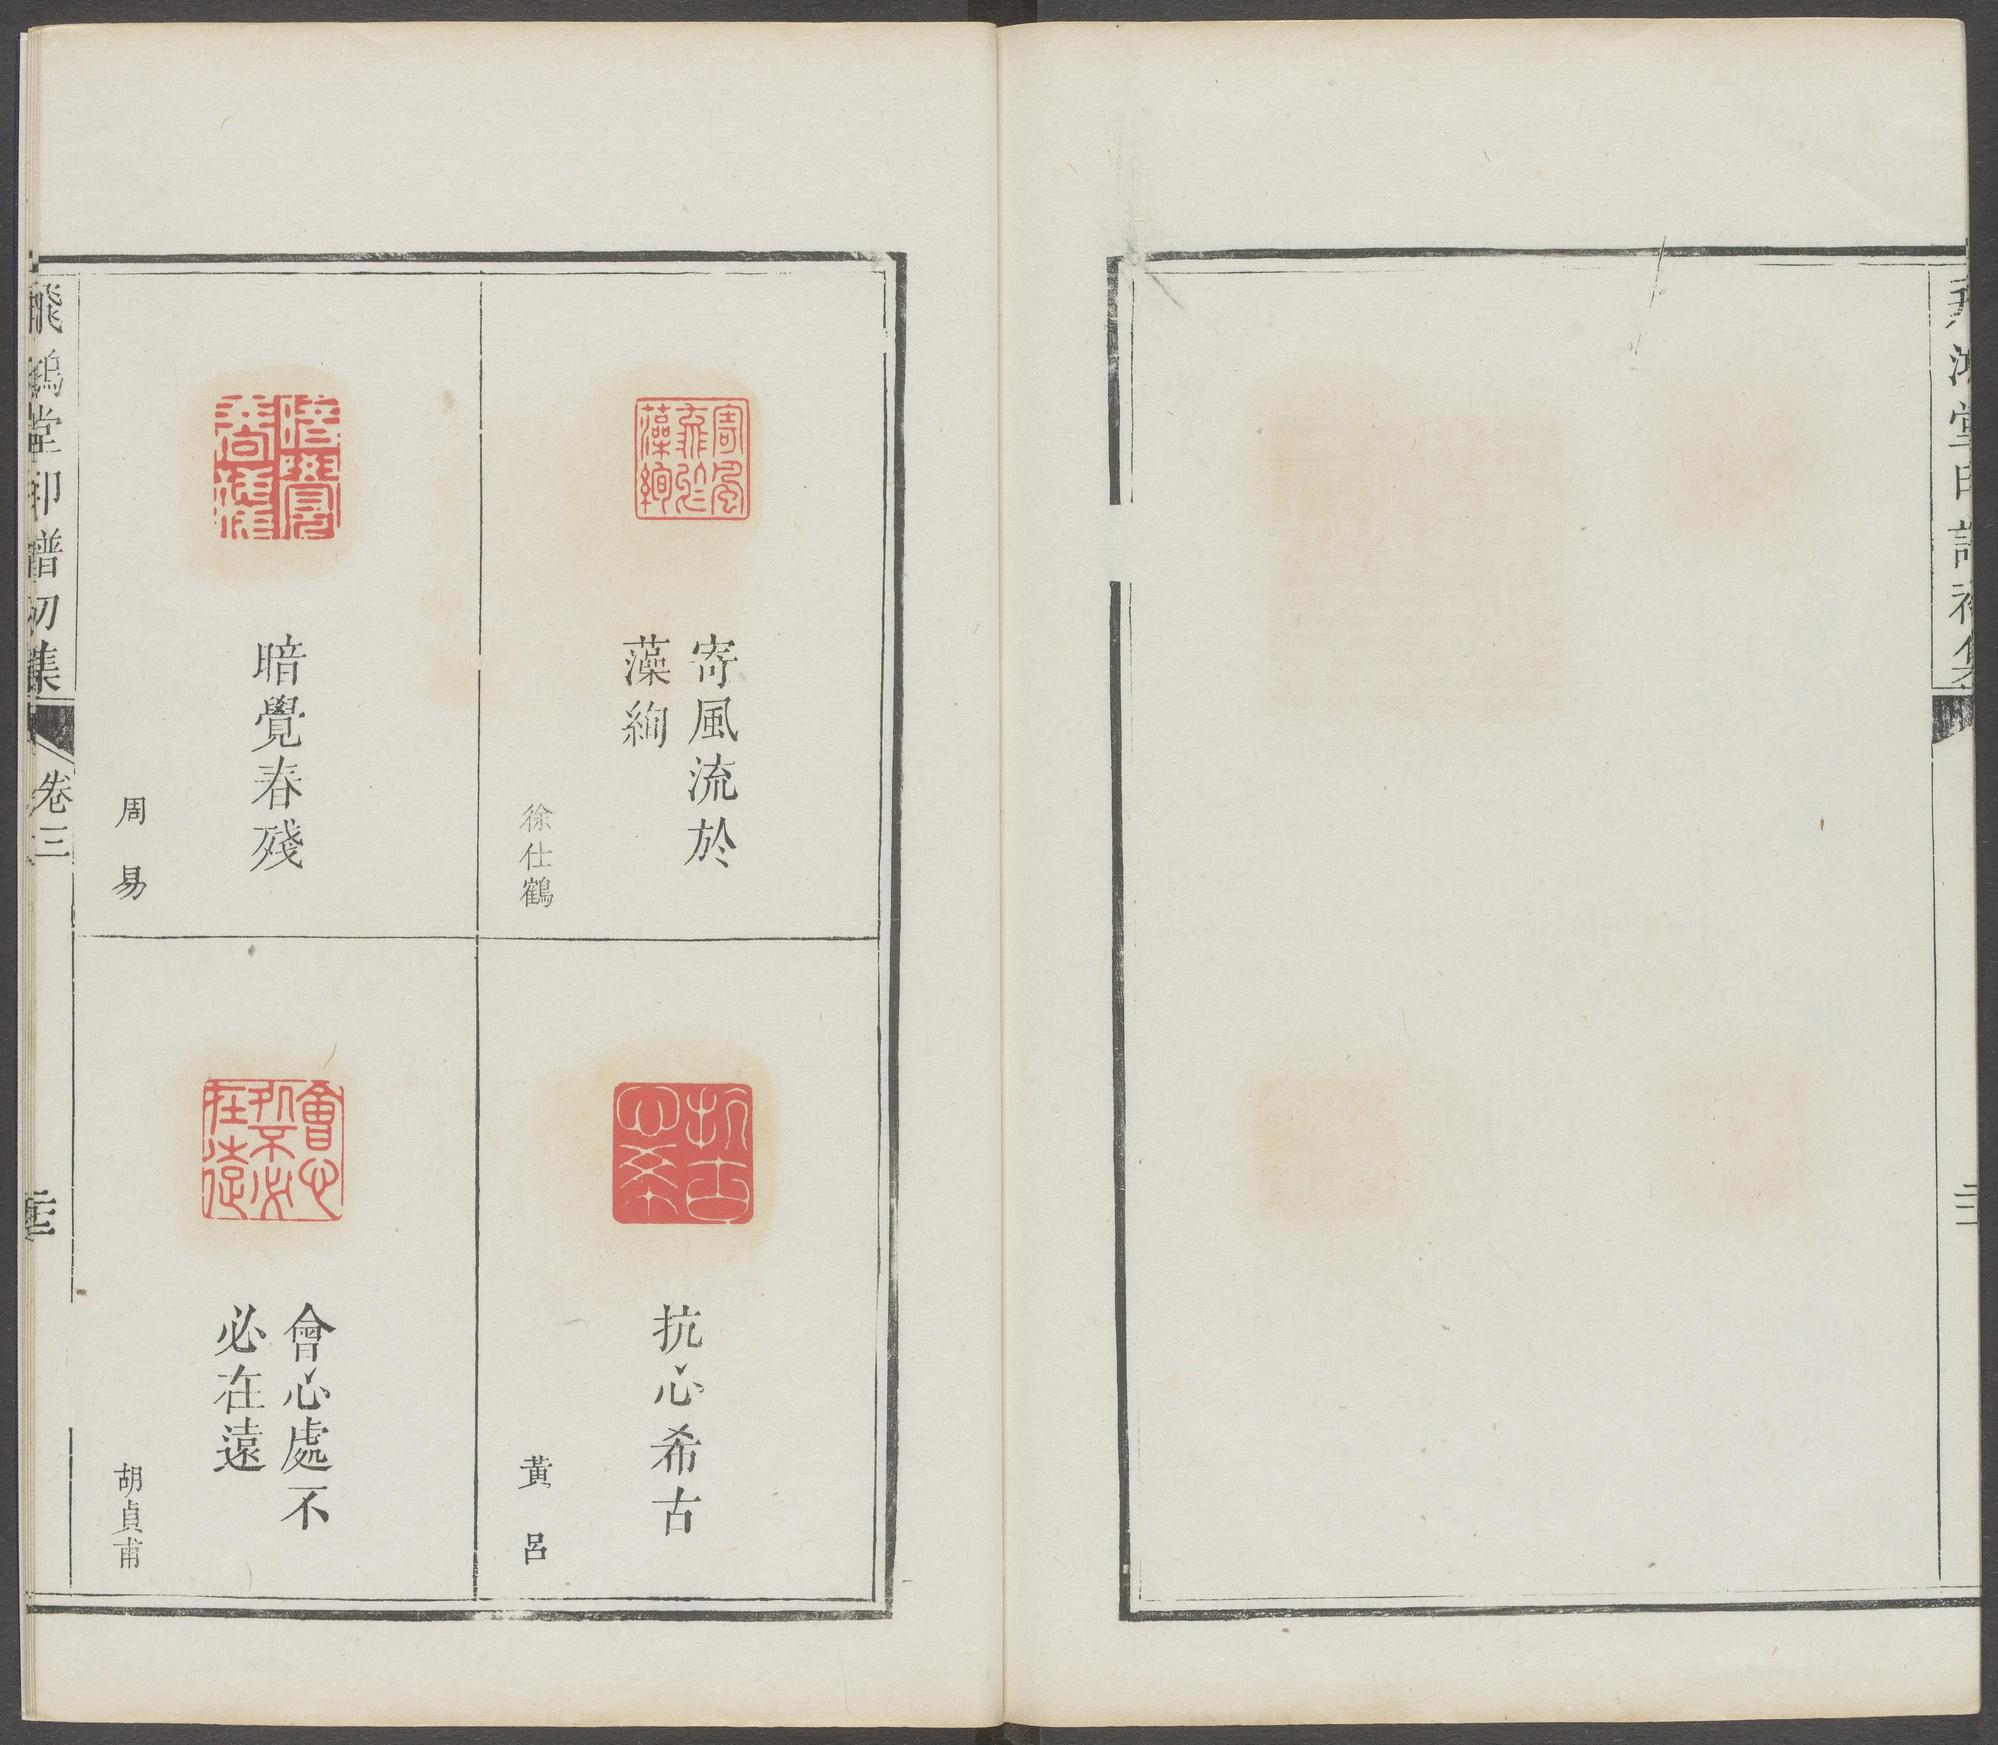 飛鴻堂印譜初集
寄風流於
藻絢
徐仕鶴
抗心希古
黃呂
暗覺春殘
周易
會心處不
必在遠
胡貞甫
飛鴻堂印譜初集
卷三